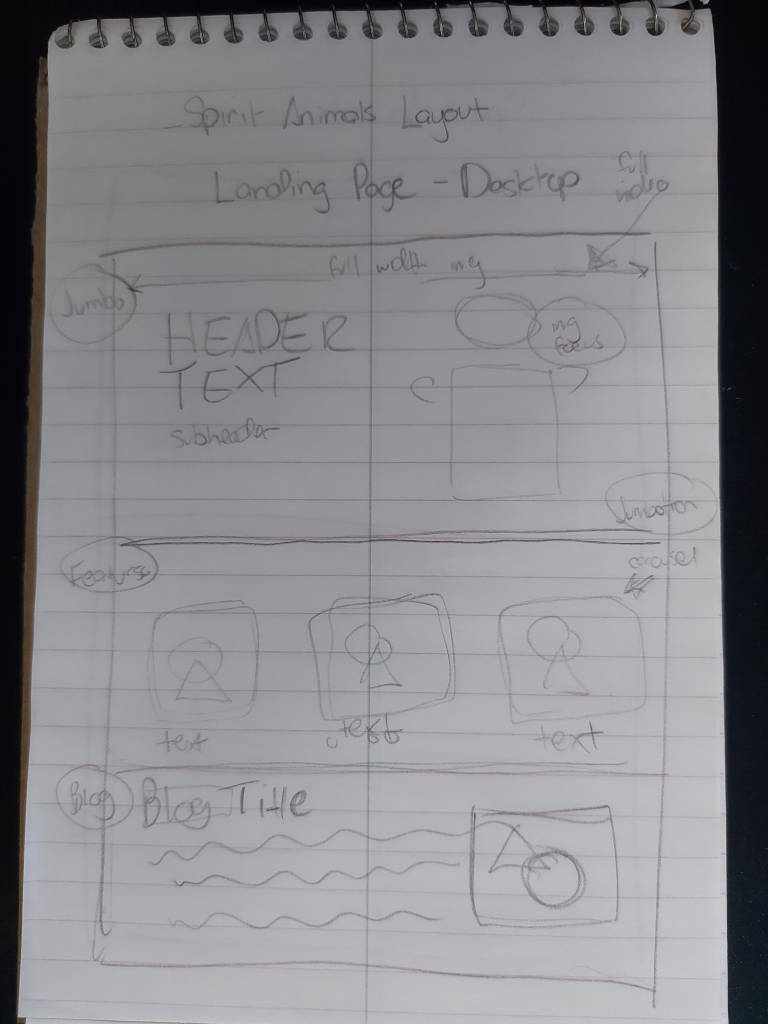 Spirit Animals Layout
Landing Page - Desktop
full
video
full width img
Jumbo
HEADER
TEXT
subheader
img
focus
Jumbotron
Features
carousel
text
text
text
Blog
Blog Title